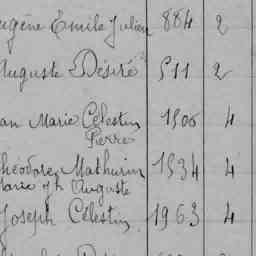 ugène Emile Julien 884 2
Auguste Désiré 511 2
an Marie Célestin 1506 4
Pierre
Théodore Mathurin 1534 4
Marie Jh Auguste
Joseph Célestin 1963 4